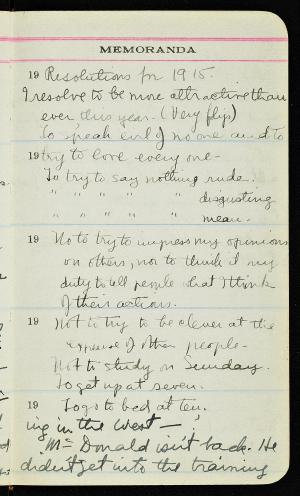 MEMORANDA
19 Resolutions for 1915.
I resolve to be more attractive than
ever this year. (Very flip)
To speak evil of no one and to
19 try to love every one-
To try to say nothing rude.
" " " " " disgusting
" " " " " mean.
19 Not to try to impress my opinions
on others, nor to think it my
duty to tell people what I think
of their actions.
19 Not to try to be clever at the
expense of other people-
Not to study on Sunday.
To get up at seven.
19 To go to bed at ten.
ing in the West-
Mc Donald isn't back. He
didn't get into the training